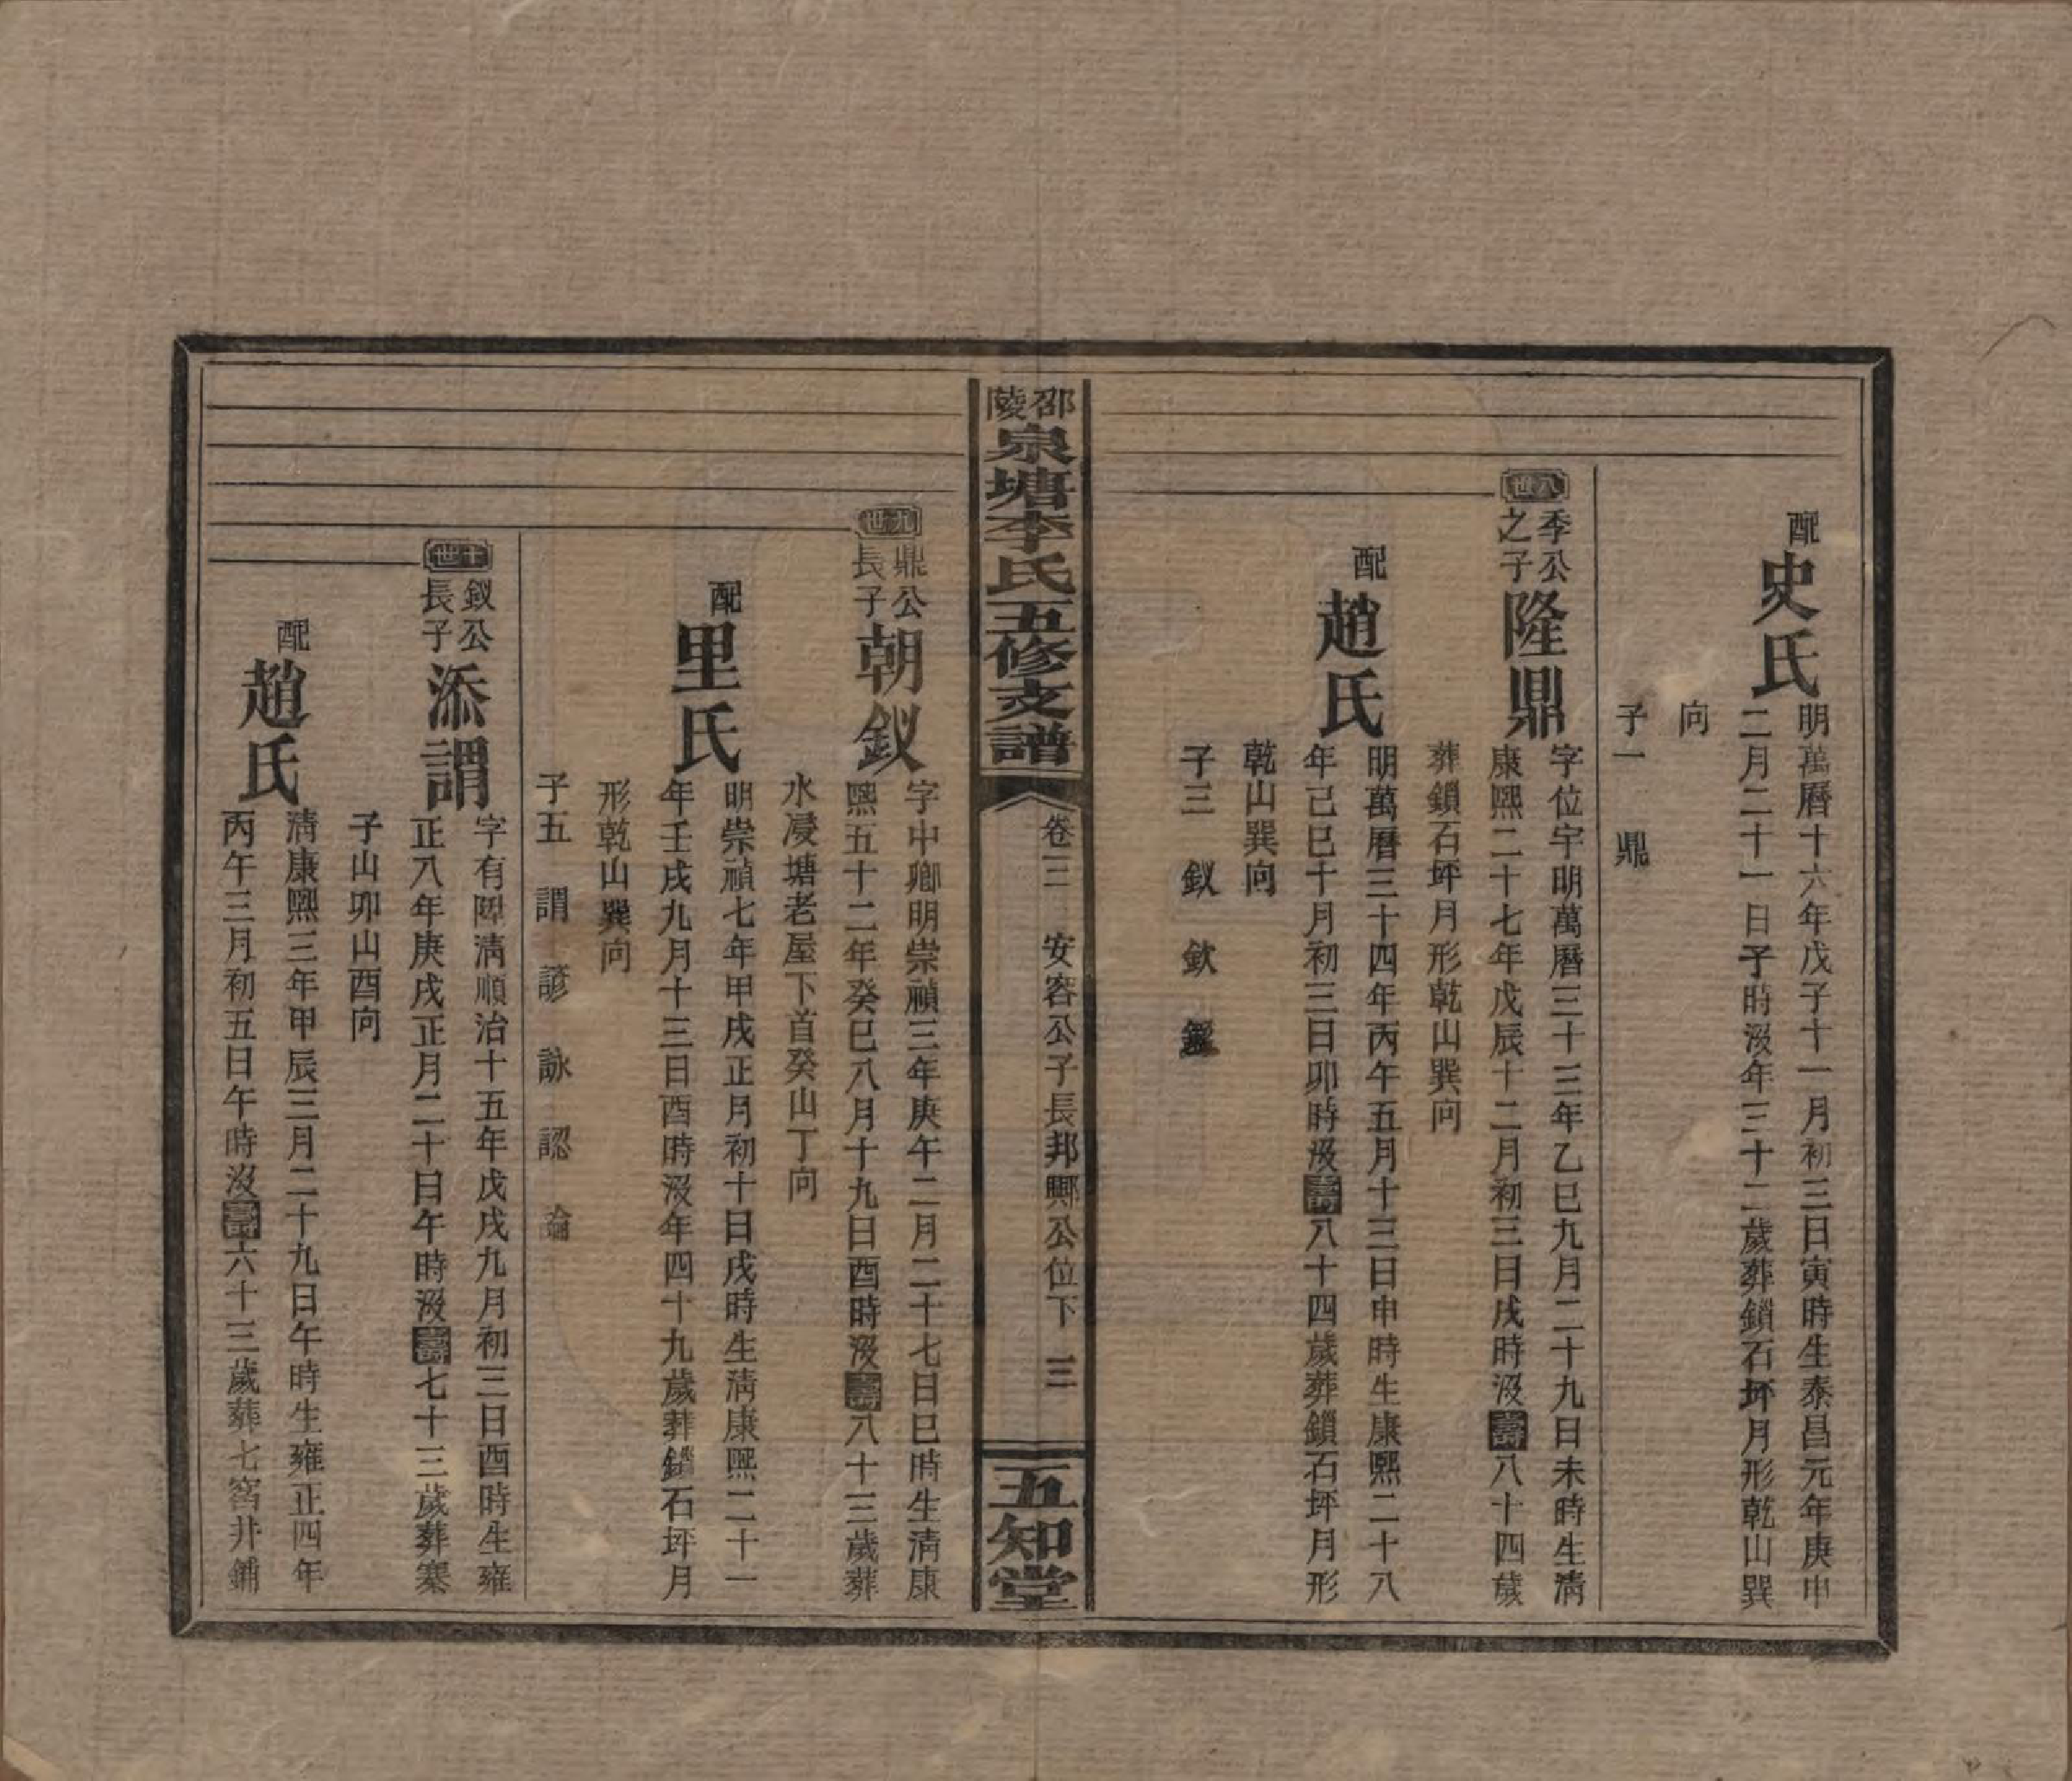 配史氏
明萬曆十六年戊子十一月初三日寅時生泰昌元年庚申
二月二十一日子時沒年三十二歲葬鎖石坪月形乾山巽
向
子一　鼎
八世
季公之子隆鼎
字位宇明萬曆三十三年乙巳九月二十九日未時生清
康熙二十七年戊辰十二月初三日戌時沒壽八十四歲
葬鎖石坪月形乾山巽向
配趙氏
明萬曆三十四年丙午五月十三日申時生康熙二十八
年己巳十月初三日卯時沒壽八十四歲葬鎖石坪月形
乾山巽向
子三　釵　欽
邵陵泉塘李氏五修支譜
卷三　安容公子長邦興公位下　三
五知堂
九世
鼎公長子朝釵
字中卿明崇禎三年庚午二月二十七日巳時生清康
熙五十二年癸巳八月十九日酉時沒壽八十三歲葬
水浸塘老屋下首癸山丁向
配里氏
明崇禎七年甲戌正月初十日戌時生清康熙二十一
年壬戌九月十三日酉時沒年四十九歲葬鎖石坪月
形乾山巽向
子五　謂　諺　詠　認　論
十世
釵公長子添謂
字有陞清順治十五年戊戌九月初三日酉時生雍
正八年庚戌正月二十日午時沒壽七十三歲葬寨
子山卯山酉向
配趙氏
清康熙三年甲辰三月二十九日午時生雍正四年
丙午三月初五日午時沒壽六十三歲葬七窩井鋪